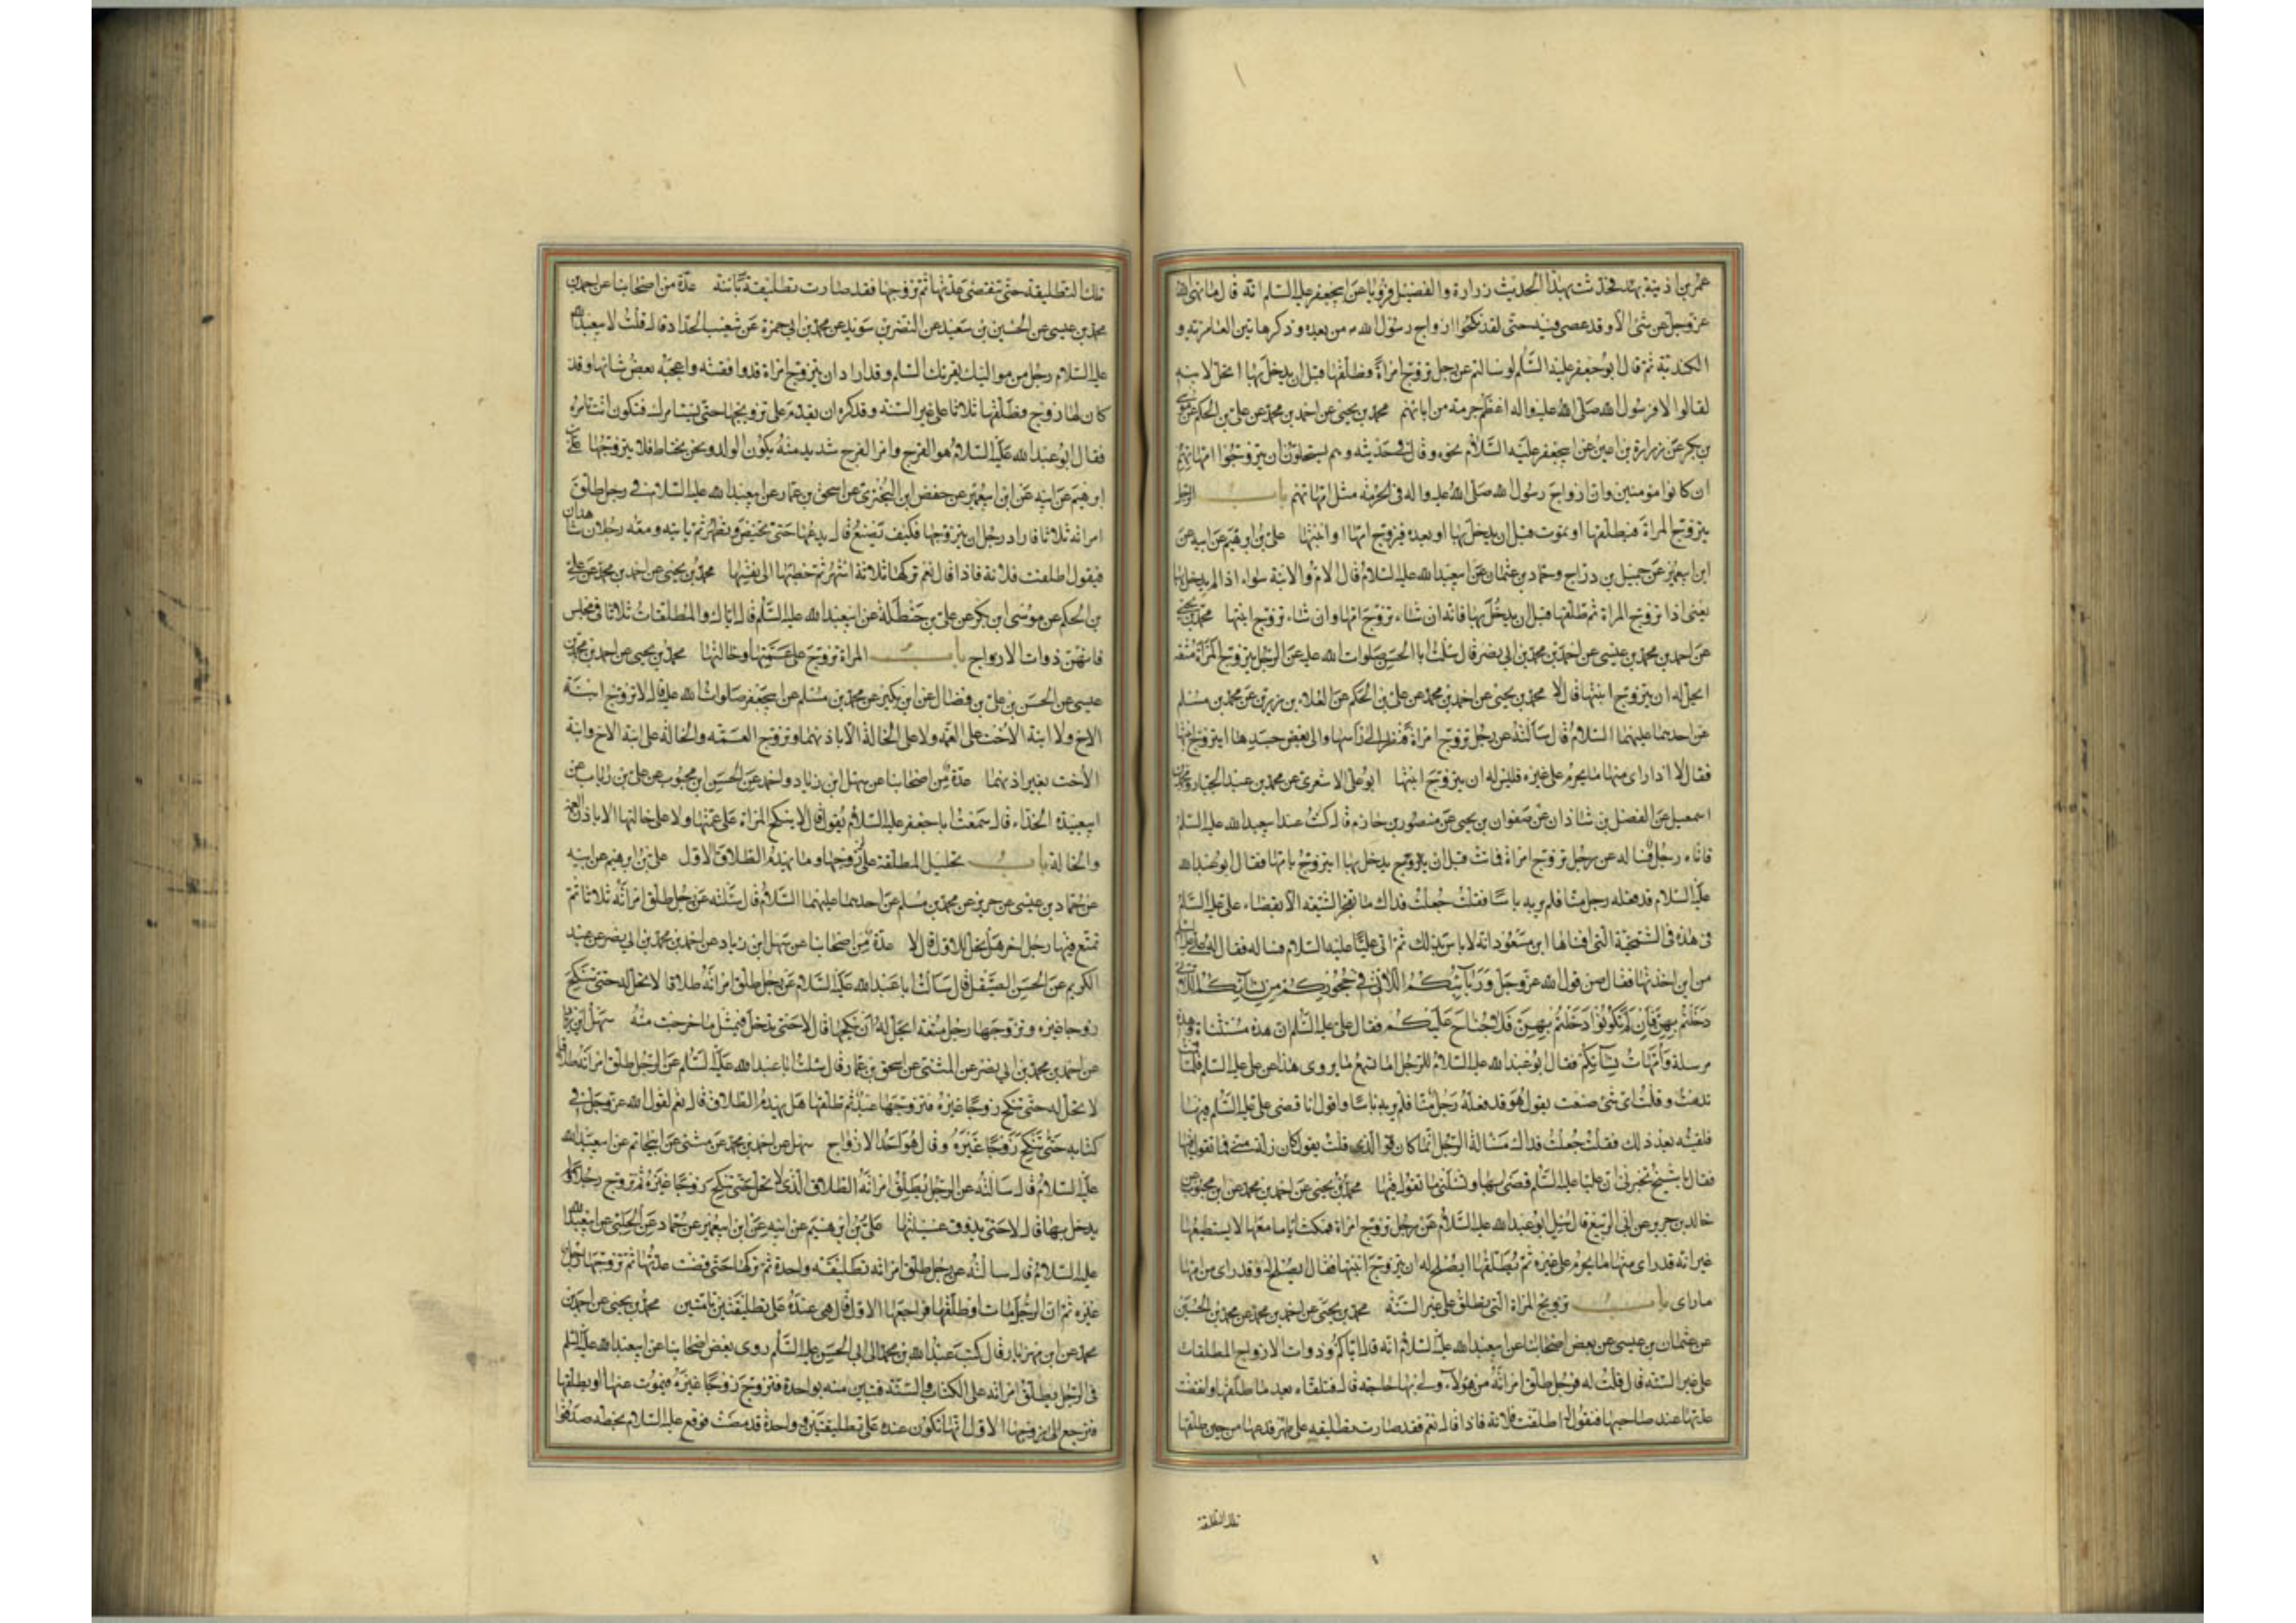 عمر بن اذينة بهذا فحدثت بهذا الحديث زرارة والفضيل فرويا عن ابي جعفر عليه السلم انه قال ما نهى الله
عز وجل عن شئ الا وقد عصى فيه حتى لقد نكحوا ازواج رسول الله ص من بعده وذكر هاتين العامرية و
الكندية ثم قال ابو جعفر عليه السلم لو سالتم عن رجل تزوج امراة فطلقها قبل ان يدخل بها اتحل لابنه
لقالوا لا فرسول الله صلى الله عليه واله اعظم حرمة من ابائهم محمد بن يحيى عن احمد بن محمد عن علي بن الحكم عن موسى
بن بكر عن زرارة بن اعين عن ابي جعفر عليه السلام نحوه وقال في حديثه وهم يستحلون ان يتزوجوا امهاتهم
ان كانوا مؤمنين وان ازواج رسول الله صلى الله عليه واله في الحرمة مثل امهاتهم باب الرجل
يتزوج المراة فيطلقها او يموت قبل ان يدخل بها او بعده فيتزوج امها او ابنتها علي بن ابرهيم عن ابيه عن
ابن ابي عمير عن جميل بن دراج وحماد بن عثمان عن ابي عبد الله عليه السلام قال الام والابنة سواء اذا لم يدخل بها
يعنى اذا تزوج المراة ثم طلقها قبل ان يدخل بها فانه ان شاء تزوج امها وان شاء تزوج ابنتها محمد بن يحيى
عن احمد بن محمد بن عيسى عن احمد بن محمد بن ابي نصر قال سئلت ابا الحسن صلوات الله عليه عن الرجل يتزوج المراة متعة
ايحل له ان يتزوج ابنتها قال لا محمد بن يحيى عن احمد بن محمد عن علي بن الحكم عن العلاء بن رزين عن محمد بن مسلم
عن احدهما عليهما السلام قال سالته عن رجل تزوج امراة فنظر الى راسها والى بعض جسدها ايتزوج ابنتها
فقال لا اذا راى منها ما يحرم على غيره فليس له ان يتزوج ابنتها ابو علي الاشعري عن محمد بن عبد الجبار ومحمد بن
اسمعيل عن الفضل بن شاذان عن صفوان بن يحيى عن منصور بن حازم قال كنت عند ابي عبد الله عليه السلم
فاتاه رجل فساله عن رجل تزوج امراة فماتت قبل ان يدخل بها ايتزوج بامها فقال ابو عبد الله
عليه السلام قد فعله رجل منا فلم ير به باسا فقلت جعلت فداك ما تفخر الشيعة الا بقضاء علي عليه السلم
في هذه في الشمخية التي افتاها ابن مسعود انه لا باس بذلك ثم اتى عليا عليه السلام فساله فقال له علي عليه السلم
من اين اخذتها فقال من قول الله عز وجل وربائبكم اللاتي في حجوركم من نسائكم اللاتي
دخلتم بهن فان لم تكونوا دخلتم بهن فلا جناح عليكم فقال علي عليه السلم ان هذه مستثناة وهذه
مرسلة وامهات نسائكم فقال ابو عبد الله عليه السلام للرجل اما تسمع ما يروى هذا عن علي عليه السلم فلما قمت
ندمت وقلت اى شئ صنعت يقول هو قد فعله رجل منا فلم ير به باسا واقول انا قضى علي عليه السلم فيها
فلقيته بعد ذلك فقلت جعلت فداك مسالة الرجل انما كان الذي قلت يقول كان زلة مني فما تقول فيها
فقال يا شيخ تخبرني ان عليا عليه السلم قضى بها وتسئلني ما تقول فيها محمد بن يحيى عن احمد بن محمد عن ابن محبوب عن
خالد بن جرير عن ابي الربيع قال سئل ابو عبد الله عليه السلام عن رجل تزوج امراة فمكث اياما معها لا يستطيعها
غير انه قد راى منها ما يحرم على غيره ثم يطلقها ايصلح له ان يتزوج ابنتها فقال ايصلح له وقد راى من امها
ما راى باب تزويج المراة التي تطلق على غير السنة محمد بن يحيى عن احمد بن محمد عن محمد بن الحسين
عن عثمان بن عيسى عن بعض اصحابنا عن ابي عبد الله عليه السلام انه قال اياكم وذوات الازواج المطلقات
على غير السنة قال قلت له فرجل طلق امراته من هؤلاء ولي بها حاجة قال فتلقاه بعد ما طلقها وانقضت
عدتها عند صاحبها فتقول له اطلقت فلانة فاذا قال نعم فقد صارت تطليقه على طهر فدعها من حين طلقها
تلك التطليقة
تلك التطليقة حتى تنقضى عدتها ثم تزوجها فقد صارت تطليقة بائنة عدة من اصحابنا عن احمد بن
محمد بن عيسى عن الحسين بن سعيد عن النضر بن سويد عن محمد بن ابي حمزة عن شعيب الحداد قال قلت لابي عبد الله
عليه السلام رجل من مواليك يقرئك السلم وقد اراد ان يتزوج امراة قد وافقته واعجبه بعض شانها وقد
كان لها زوج فطلقها ثلاثا على غير السنة وقد كره ان يقدم على تزويجها حتى يستامرك فتكون انت تامره
فقال ابو عبد الله عليه السلام هو الفرج وامر الفرج شديد منه يكون الولد ونحن نحتاط فلا يتزوجها علي بن
ابرهيم عن ابيه عن ابن ابي عمير عن حفص ابن البختري عن اسحق بن عمار عن ابي عبد الله عليه السلام في رجل طلق
امراته ثلاثا فاراد رجل ان يتزوجها فكيف يصنع قال يدعها حتى تحيض وتطهر ثم ياتيه ومعه رجلان شاهدان
فيقول اطلقت فلانة فاذا قال نعم تركها ثلاثة اشهر ثم خطبها الى نفسها محمد بن يحيى عن احمد بن محمد عن علي
بن الحكم عن موسى ابن بكر عن علي بن حنظلة عن ابي عبد الله عليه السلم قال اياك والمطلقات ثلاثا في مجلس
فانهن ذوات الازواج باب المراة تزوج على عمتها وخالتها محمد بن يحيى عن احمد بن محمد بن
عيسى عن الحسن بن علي بن فضال عن ابن بكير عن محمد بن مسلم عن ابي جعفر صلوات الله عليه قال لا تزوج ابنة
الاخ ولا ابنة الاخت على العمة ولا على الخالة الا باذنهما وتزوج العمة والخالة على ابنة الاخ وابنة
الاخت بغير اذنهما عدة من اصحابنا عن سهل ابن زياد واحمد عن الحسن ابن محبوب عن علي بن رئاب عن
ابي عبيدة الحذاء قال سمعت ابا جعفر عليه السلام يقول قال لا ينكح المراة على عمتها ولا على خالتها الا باذن العمة
والخالة باب تحليل المطلقة على زوجها وما يهدم الطلاق الاول علي بن ابرهيم عن ابيه
عن حماد بن عيسى عن حريز عن محمد بن مسلم عن احدهما عليهما السلام قال سئلته عن رجل طلق امراته ثلاثا ثم
تمتع فيها رجل اخر هل تحل للاول قال لا عدة من اصحابنا عن سهل ابن زياد عن احمد بن محمد بن ابي نصر عن عبد
الكريم عن الحسن الصيقل قال سالت ابا عبد الله عليه السلام عن رجل طلق امراته طلاقا لا تحل له حتى تنكح
زوجا غيره وتزوجها رجل متعة ايحل له ان ينكحها قال لا حتى تدخل في مثل ما خرجت منه سهل ابن زياد
عن احمد بن محمد بن ابي نصر عن المثنى عن اسحق بن عمار قال سئلت ابا عبد الله عليه السلم عن الرجل طلق امراته طلاقا
لا تحل له حتى تنكح زوجا غيره فتزوجها عبد ثم طلقها هل يهدم الطلاق قال نعم لقول الله عز وجل في
كتابه حتى تنكح زوجا غيره وقال هو احد الازواج سهل عن احمد بن محمد عن مثنى عن ابي حاتم عن ابي عبد الله
عليه السلام قال سالته عن الرجل يطلق امراته الطلاق الذي لا تحل له حتى تنكح زوجا غيره ثم تزوج رجلا ولا
يدخل بها قال لا حتى يذوق عسيلتها علي بن ابرهيم عن ابيه عن ابن ابي عمير عن حماد عن الحلبي عن ابي عبد الله
عليه السلام قال سالته عن رجل طلق امراته تطليقة واحدة ثم تركها حتى قضت عدتها ثم تزوجها رجل
غيره ثم ان الرجل مات او طلقها فراجعها الاول قال هي عنده على تطليقتين تامتين محمد بن يحيى عن احمد بن
محمد عن ابن مهزيار قال كتب عبد الله بن محمد الى ابي الحسن عليه السلم روى بعض اصحابنا عن ابي عبد الله عليه السلم
في الرجل يطلق امراته على الكتاب والسنة فتبين منه بواحدة فتزوج زوجا غيره فيموت عنها او يطلقها
فترجع الى زوجها الاول انها تكون عنده على تطليقتين وواحدة قد مضت فوقع عليه السلام بخطه صدقوا